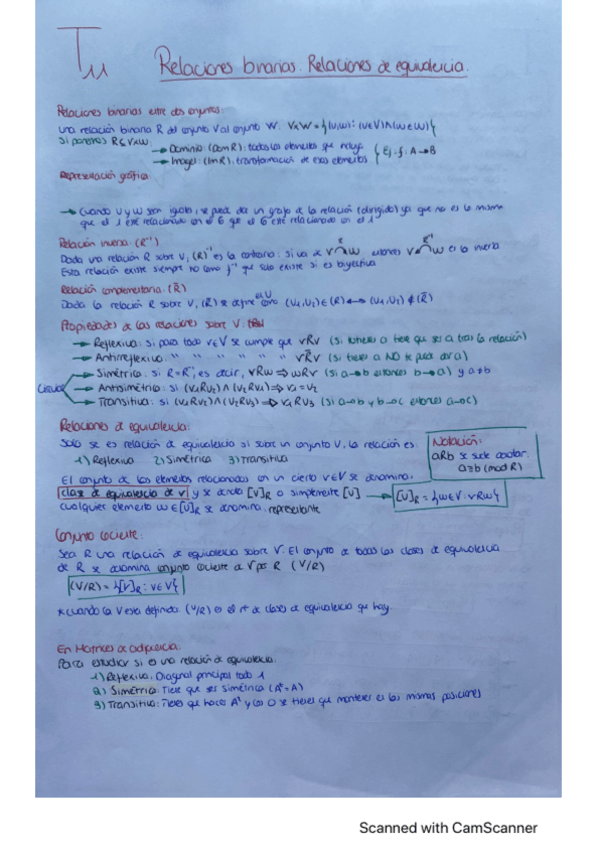 T11
Relaciones binarias. Relaciones de equivalencia.
Relaciones binarias entre dos conjuntos:
Una relación binaria R del conjunto V al conjunto W. V×W = {(v,w): (v∈V)∧(w∈W)}
Si ponemos R⊆V×W:
→ Dominio: (Dom R): todos los elementos que
→ Imagen: (Im R): transformación de esos elementos { Ej: f: A→B
Representación gráfica:
→ Cuando V y W son iguales, se puede dar un grafo de la relación (dirigido) ya que no es lo mismo
que el 1 esté relacionado con el 6 que el 6 esté relacionado con el 1
Relación inversa: (R⁻¹)
Dada una relación R sobre V, (R)⁻¹ es la contraria: si va de V W entonces V W es la inversa
Esta relación existe siempre no como f⁻¹ que solo existe si es biyectiva
Relación complementaria: (R̄)
Dada la relación R sobre V, (R̄) se define como (V₁,V₂)∈(R) ↔ (V₁,V₂)∉(R̄)
Propiedades de las relaciones sobre V:
→ Reflexiva: si para todo v∈V se cumple que vRv (si tienes a tiene que ser a tras la relación)
→ Antirreflexiva: " " " " " " " vR̄v (si tienes a NO te puede dar a)
→ Simétrica: si R=R⁻¹, es decir, vRw ⇒ wRv (si a→b entonces b→a) y a≠b
→ Antisimétrica: si (V₁RV₂)∧(V₂RV₁) ⇒ V₁=V₂
→ Transitiva: si (V₁RV₂)∧(V₂RV₃) ⇒ V₁RV₃ (si a→b y b→c entonces a→c)
Relaciones de equivalencia:
Solo se es relación de equivalencia si sobre un conjunto V, la relación es:
1) Reflexiva 2) Simétrica 3) Transitiva
Notación:
aRb se suele denotar
a≡b (mod R)
El conjunto de los elementos relacionados con un cierto v∈V se denomina:
clase de equivalencia de v y se denota [V]R o simplemente [V] → [V]R = {w∈V: vRw}
Cualquier elemento w∈[V]R se denomina representante
Conjunto cociente:
Sea R una relación de equivalencia sobre V. El conjunto de todas las clases de equivalencia
de R se denomina conjunto cociente de V por R (V/R)
(V/R) = {[V]R: v∈V}
*Cuando la V está definida (V/R) es el nº de clases de equivalencia que hay
En Matrices de adyacencia:
Para estudiar si es una relación de equivalencia:
1) Reflexiva: Diagonal principal todo 1
2) Simétrica: Tiene que ser simétrica (Aᵗ=A)
3) Transitiva: Tienes que hacer A² y los 0 se tienen que mantener en las mismas posiciones
Scanned with CamScanner